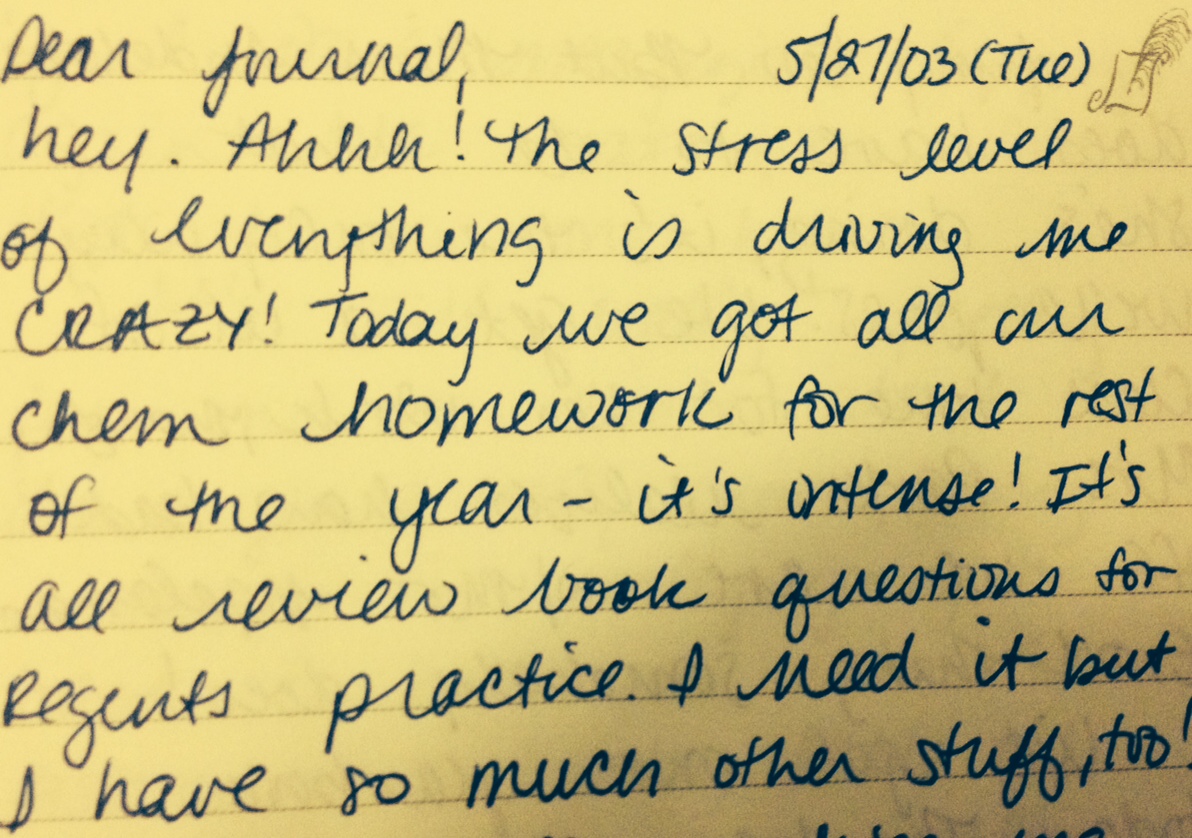 Dear Journal, 5/27/03 (Tue)
hey. Ahhh! The stress level
of everything is driving me
CRAZY! Today we got all our
chem homework for the rest
of the year - it's intense! It's
all review book questions for
Regents practice. I need it but
I have so much other stuff, too!